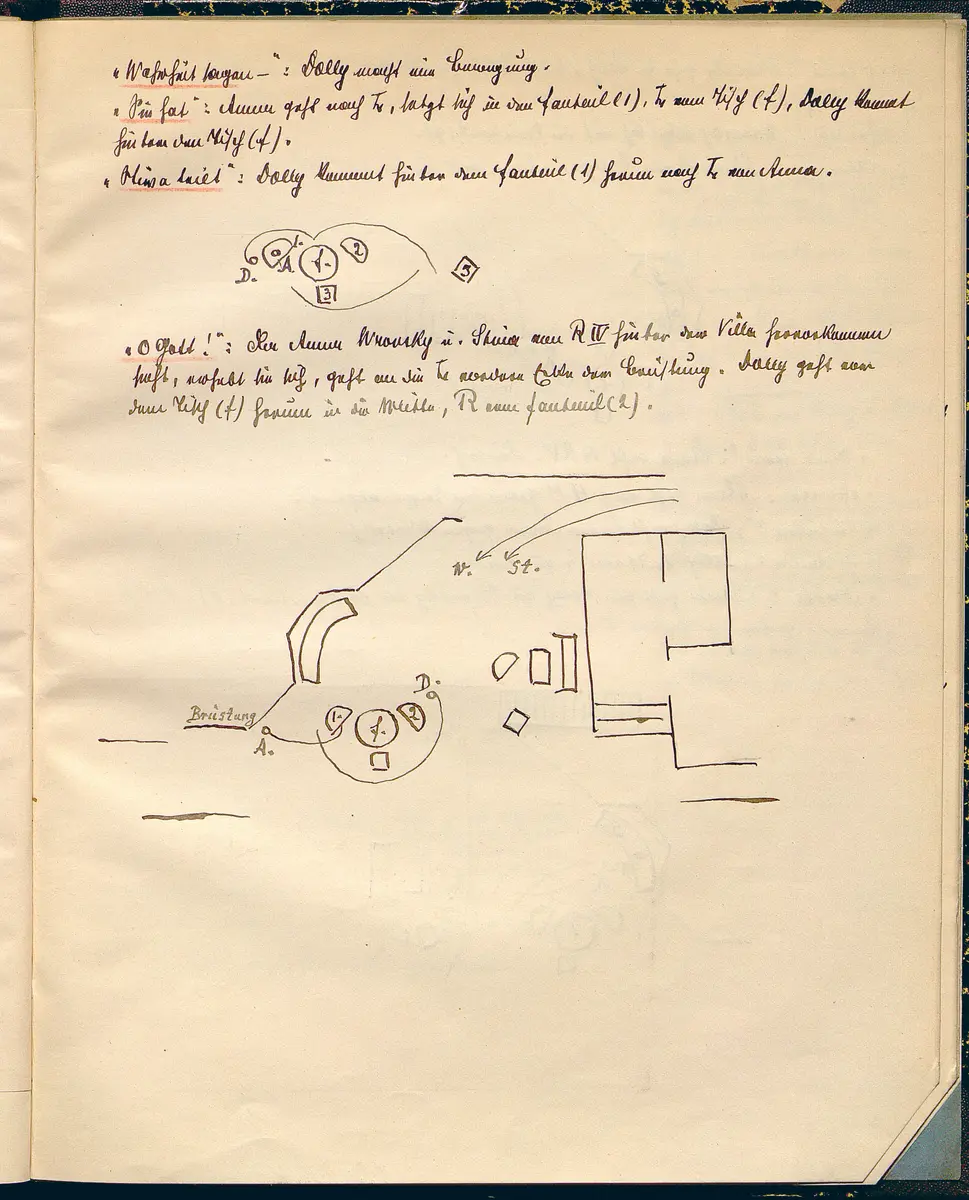 „Wahrheit sagen –“: Dolly macht eine Bewegung.
„Sie hat“: Anna geht nach L, setzt sich in den Fauteuil (1), L vom Tisch (f), Dolly kommt
hinter den Tisch (f).
: Dolly kommt hinter dem Fauteuil (1) herum nach L von Anna.
D. A. 1. f. 2 3 3
„O Gott!“: Da Anna Wronsky u. von R IV hinter der Villa hervorkommen
sieht, erhebt sie sich, geht an die L vordere Ecke der Brüstung. Dolly geht vor
dem Tisch (f) herum in die Mitte, R vom Fauteuil (2).
W. St.
D.
Brüstung 1. f. 2
A.